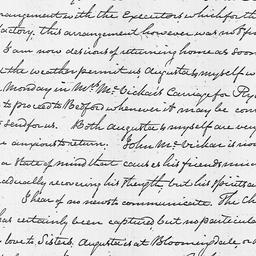 arrangement with the Executors which for th
factory, this arrangement however was not f
I am now desirous of returning home as soon
d the weather permit us Augusta & myself w
Monday in Mr. McVickar's Carriage for Rye
to proceed to Bedford whenever it may be con
send for us. Both Augusta & myself are very
anxious to return. John McVickar is now
a state of mind that causes his friends muc
adually recovering his strength, but his Spirits a
I hear of no news to communicate. The Ch
as certainly been captured, but no particula
love to Sisters. Augusta is at Bloomingdale, o